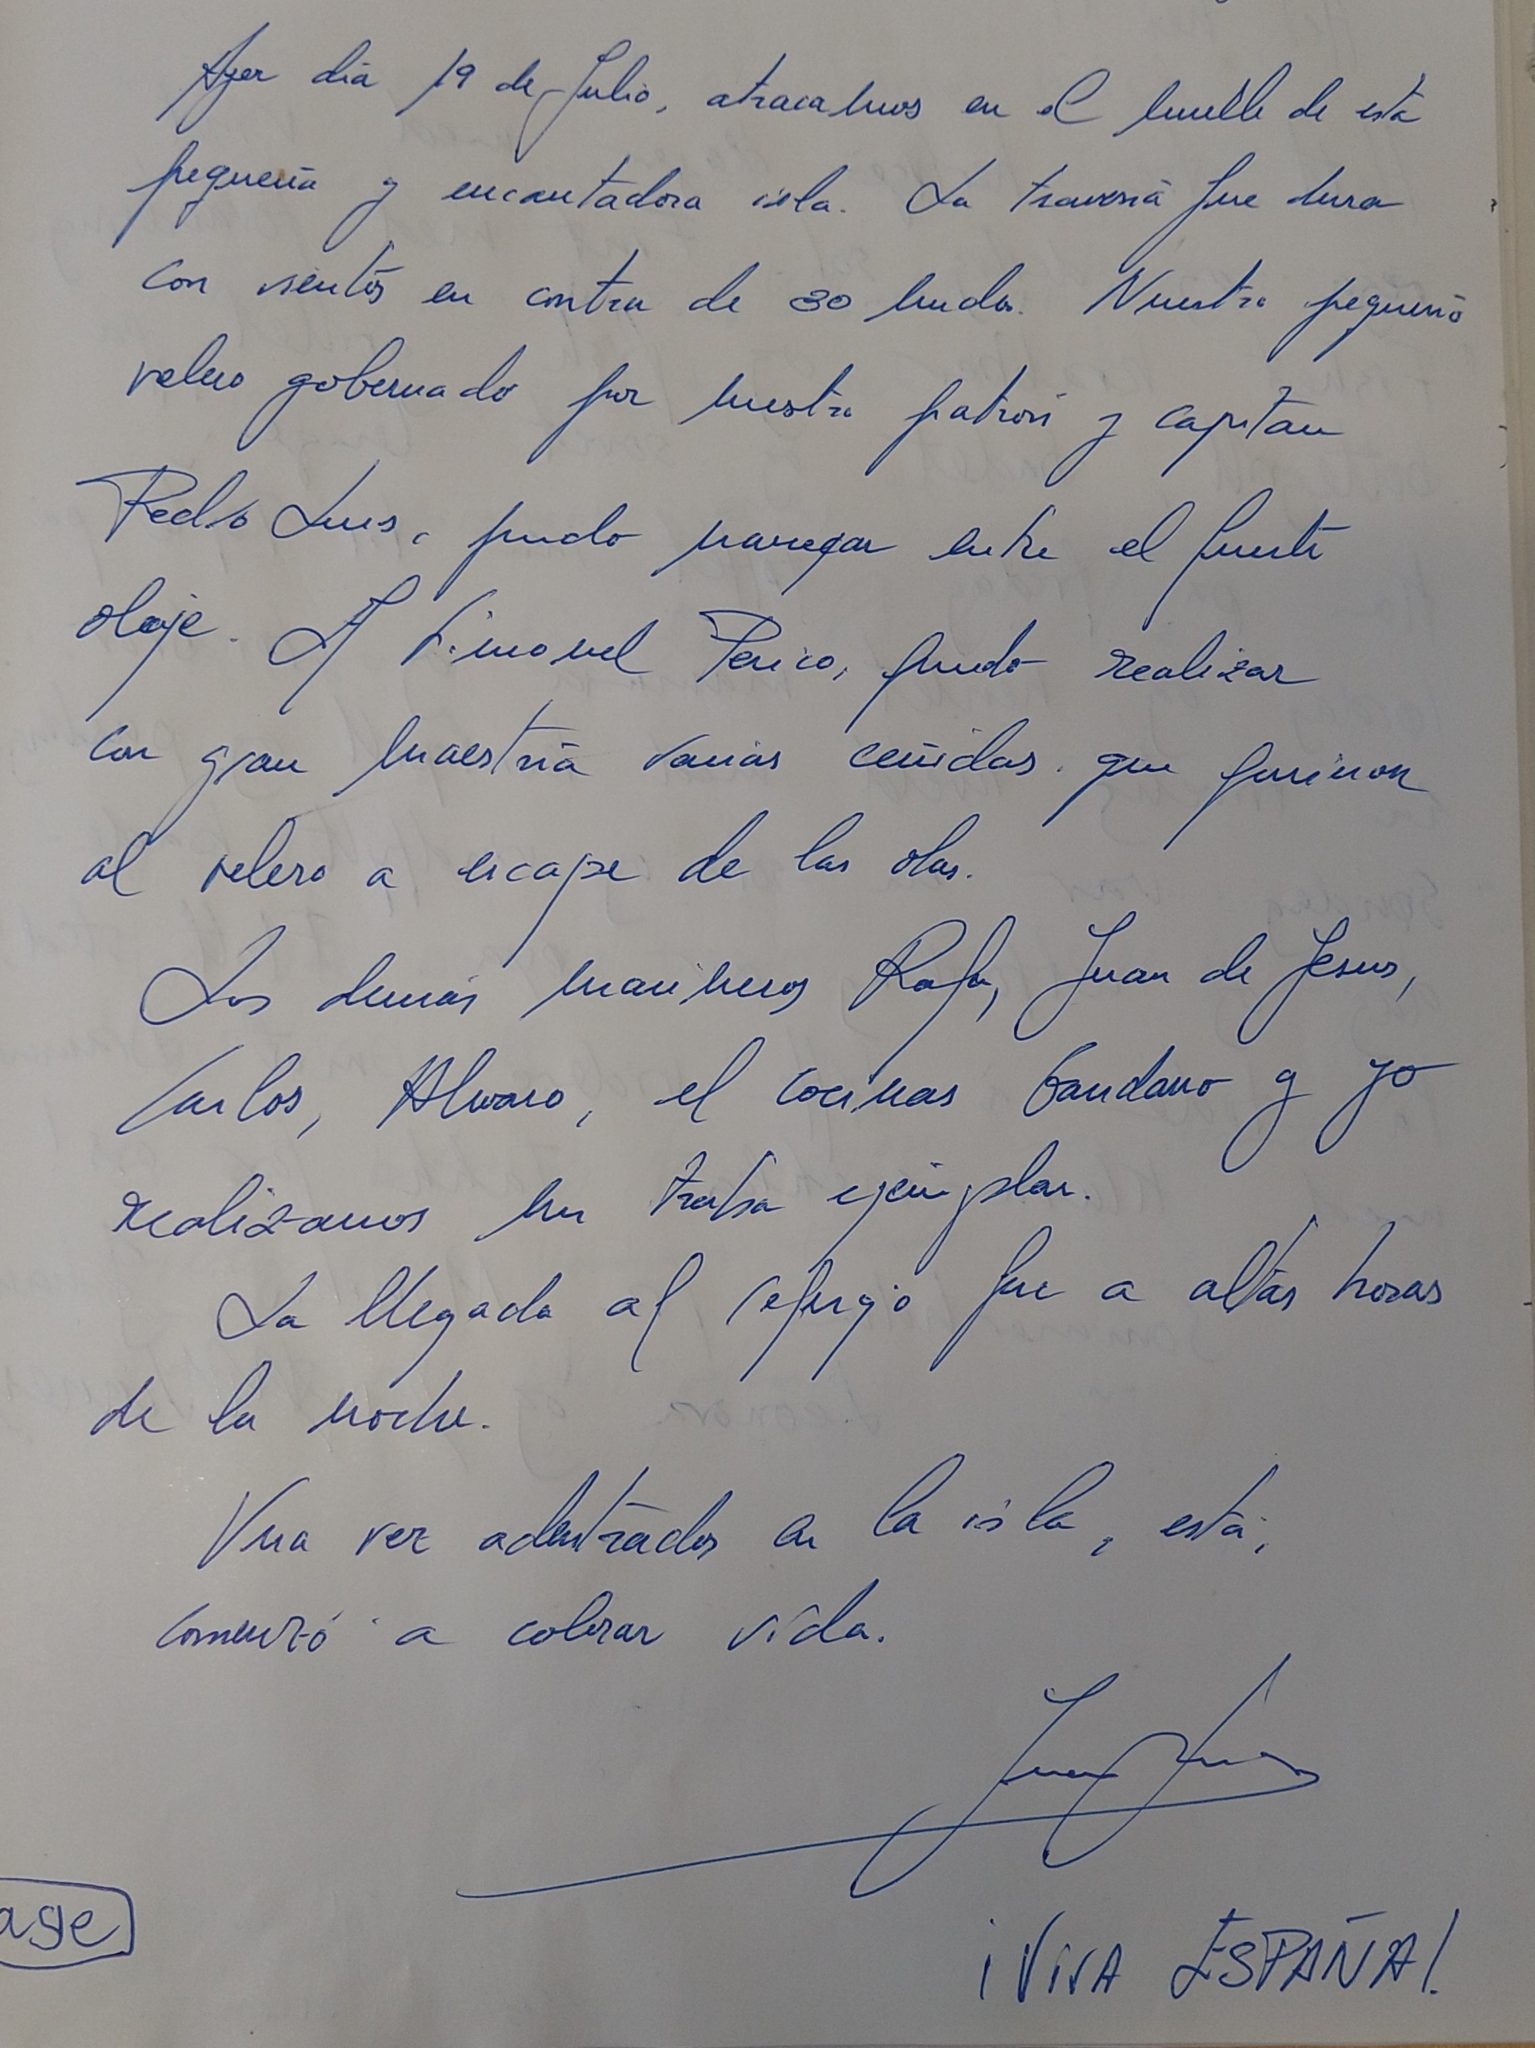 Ayer día 19 de Julio, atracamos en el muelle de esta
pequeña y encantadora isla. La travesía fue dura
con vientos en contra de 30 nudos. Nuestro pequeño
velero gobernado por nuestro patrón y capitán
Pedro Luis, pudo navegar entre el fuerte
oleaje. Al timonel Perico, pudo realizar
con gran maestría varias ceñidas que pusieron
al velero a escape de las olas.
Los demás marineros Rafa, Juan de Jesus,
Carlos, Alvaro, el cocinas Gandano y yo
realizamos un trabajo ejemplar.
La llegada al refugio fue a altas horas
de la noche.
Una vez adentrados en la isla, esta,
comenzó a cobrar vida.
age
¡VIVA ESPAÑA!